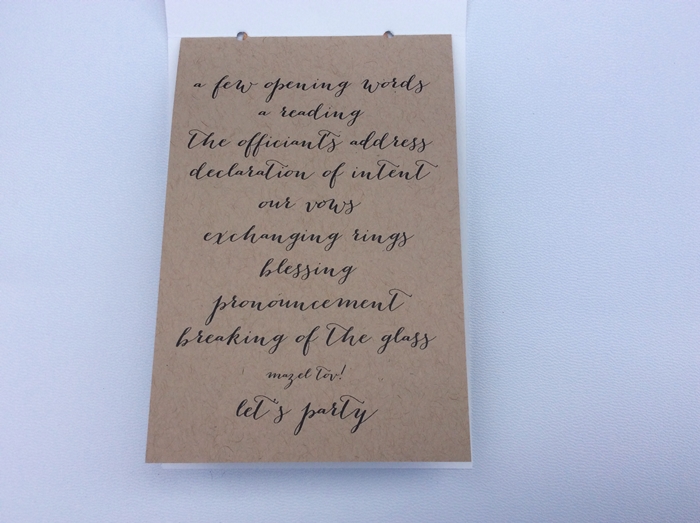 a few opening words
a reading
the officiant's address
declaration of intent
our vows
exchanging rings
blessing
pronouncement
breaking of the glass
mazel tov!
let's party